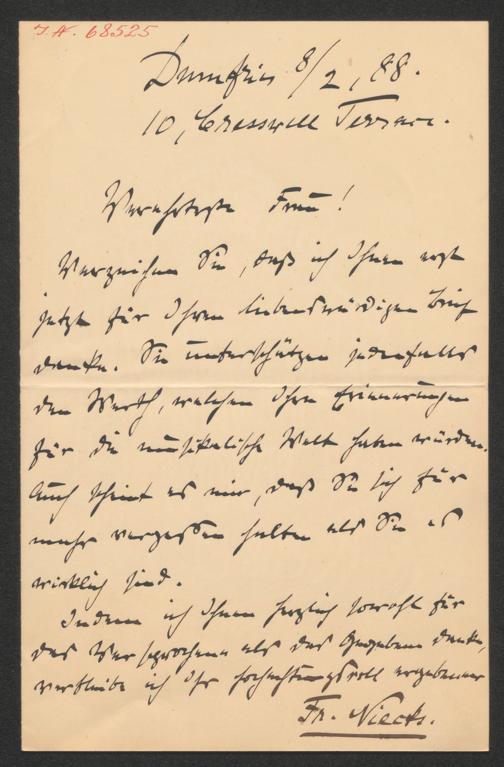 J.N. 68525
Dumfries 8/2, 88.
10, Cresswell Terrace.
Verehrteste Frau!
Verzeihen Sie, daß ich Ihnen erst
jetzt für Ihren liebenswürdigen Brief
danke. Sie unterschätzen jedenfalls
den Werth, welchen Ihre Erinnerungen
für die musikalische Welt haben würden.
Auch scheint es mir, daß Sie sich für
mehr vergessen halten als Sie es
wirklich sind.
Indem ich Ihnen herzlich sowohl für
das Versprochene als das Gegebene danke,
verbleibe ich Ihr hochachtungsvoll ergebener
Fr. Niecks.